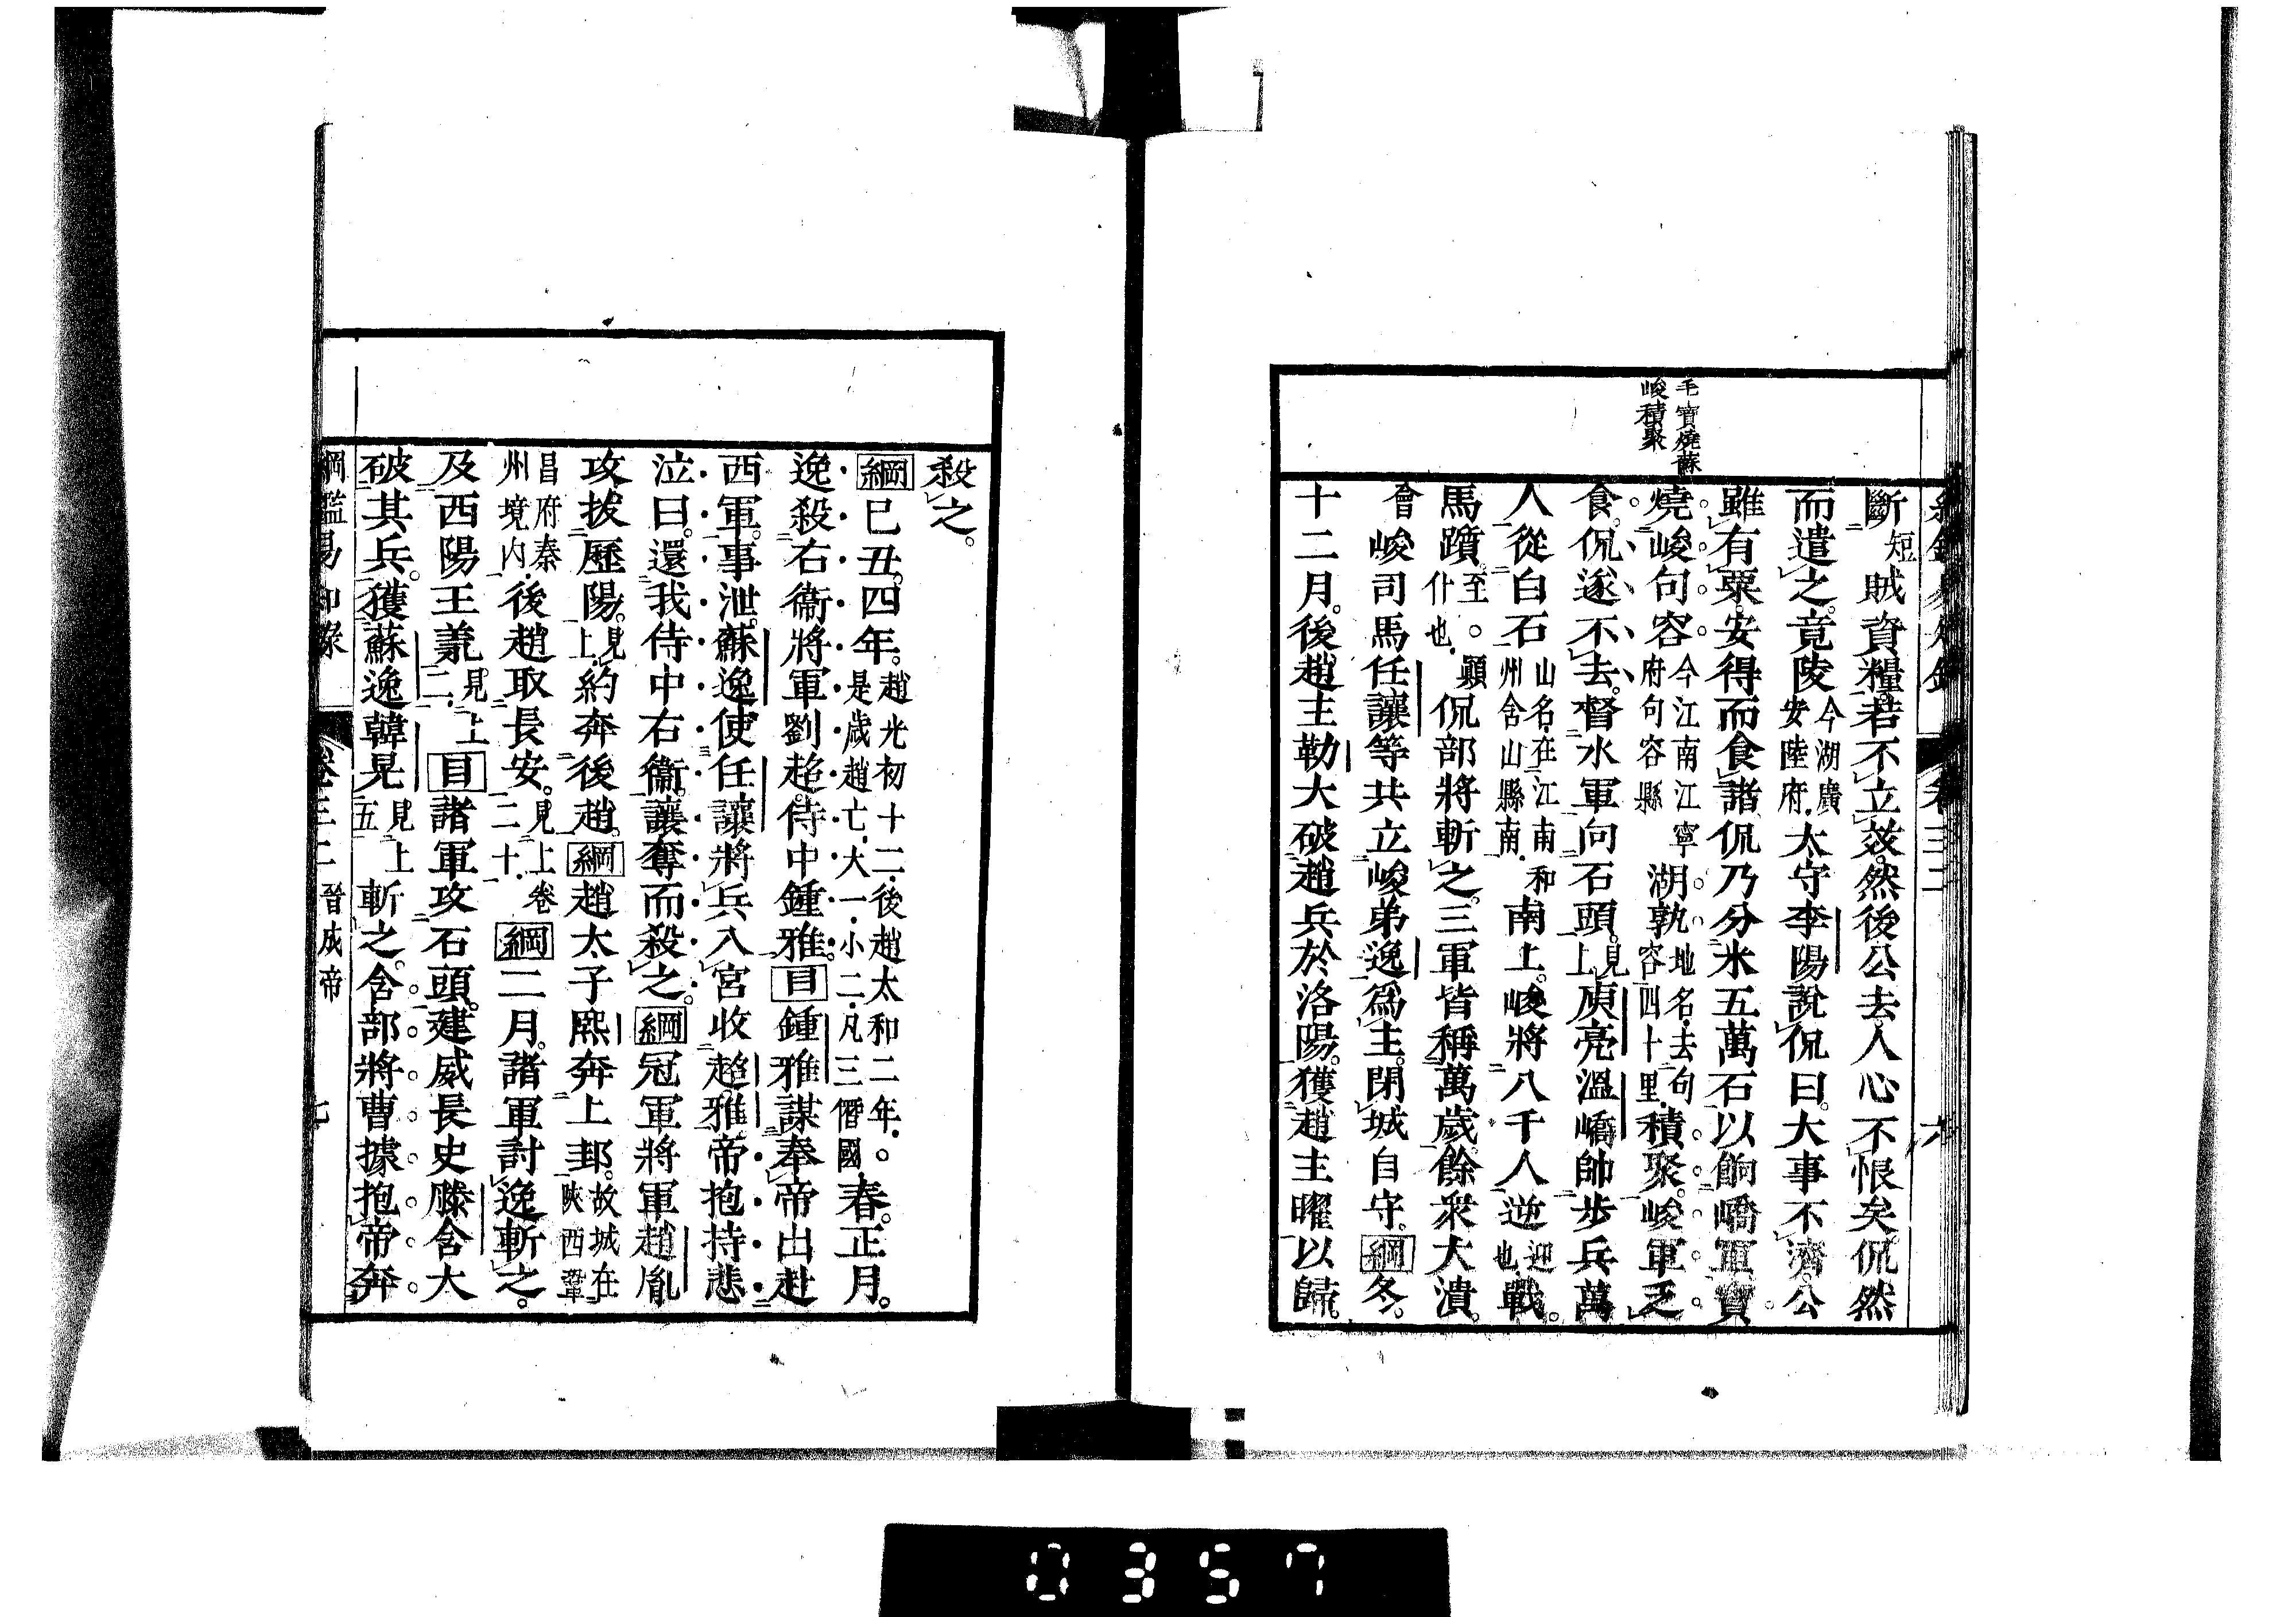 毛寶燒蘇
峻積聚
斷短賊資糧。若不立效。然後公去人心不恨矣侃然
而遣之。竟陵今湖廣安陸府.太守李陽說侃曰。大事不濟。公
雖有粟。安得而食諸侃乃分米五萬石以餉嶠軍寶
燒峻句容今江南江寧府句容縣湖孰地名.去句容四十里.積聚。峻軍乏
食。侃遂不去。督水軍向石頭。見上庾亮溫嶠帥步兵萬
人從白石山名.在江南和州含山縣南.南上。峻將八千人逆迎也.戰。
馬躓。至。顚什也.侃部將斬之。三軍皆稱萬歲。餘衆大潰。
會峻司馬任讓等共立峻弟逸爲主。閉城自守。綱冬。
十二月。後趙主勒大破趙兵於洛陽。獲趙主曜以歸。
殺之。
綱巳丑。四年。趙光初十二.後趙太和二年.○是歲趙亡.大一.小二.凡三僭國.春。正月。
逸殺右衞將軍劉超。侍中鍾雅。目鍾雅謀奉帝出赴
西軍。事泄。蘇逸使任讓將兵入宮收超雅。帝抱持悲
泣曰。還我侍中右衞。讓奪而殺之。綱冠軍將軍趙胤
攻拔歷陽。見上.約奔後趙。綱趙太子熙奔上邽。故城在陝西鞏
昌府秦州境內.後趙取長安。見上卷二十.綱二月。諸軍討逸斬之。
及西陽王羕。見上二.目諸軍攻石頭。建威長史滕含大
破其兵。獲蘇逸韓晃見上五斬之。含部將曹據抱帝奔
綱鑑易知錄 卷三二 晉成帝 七
0357